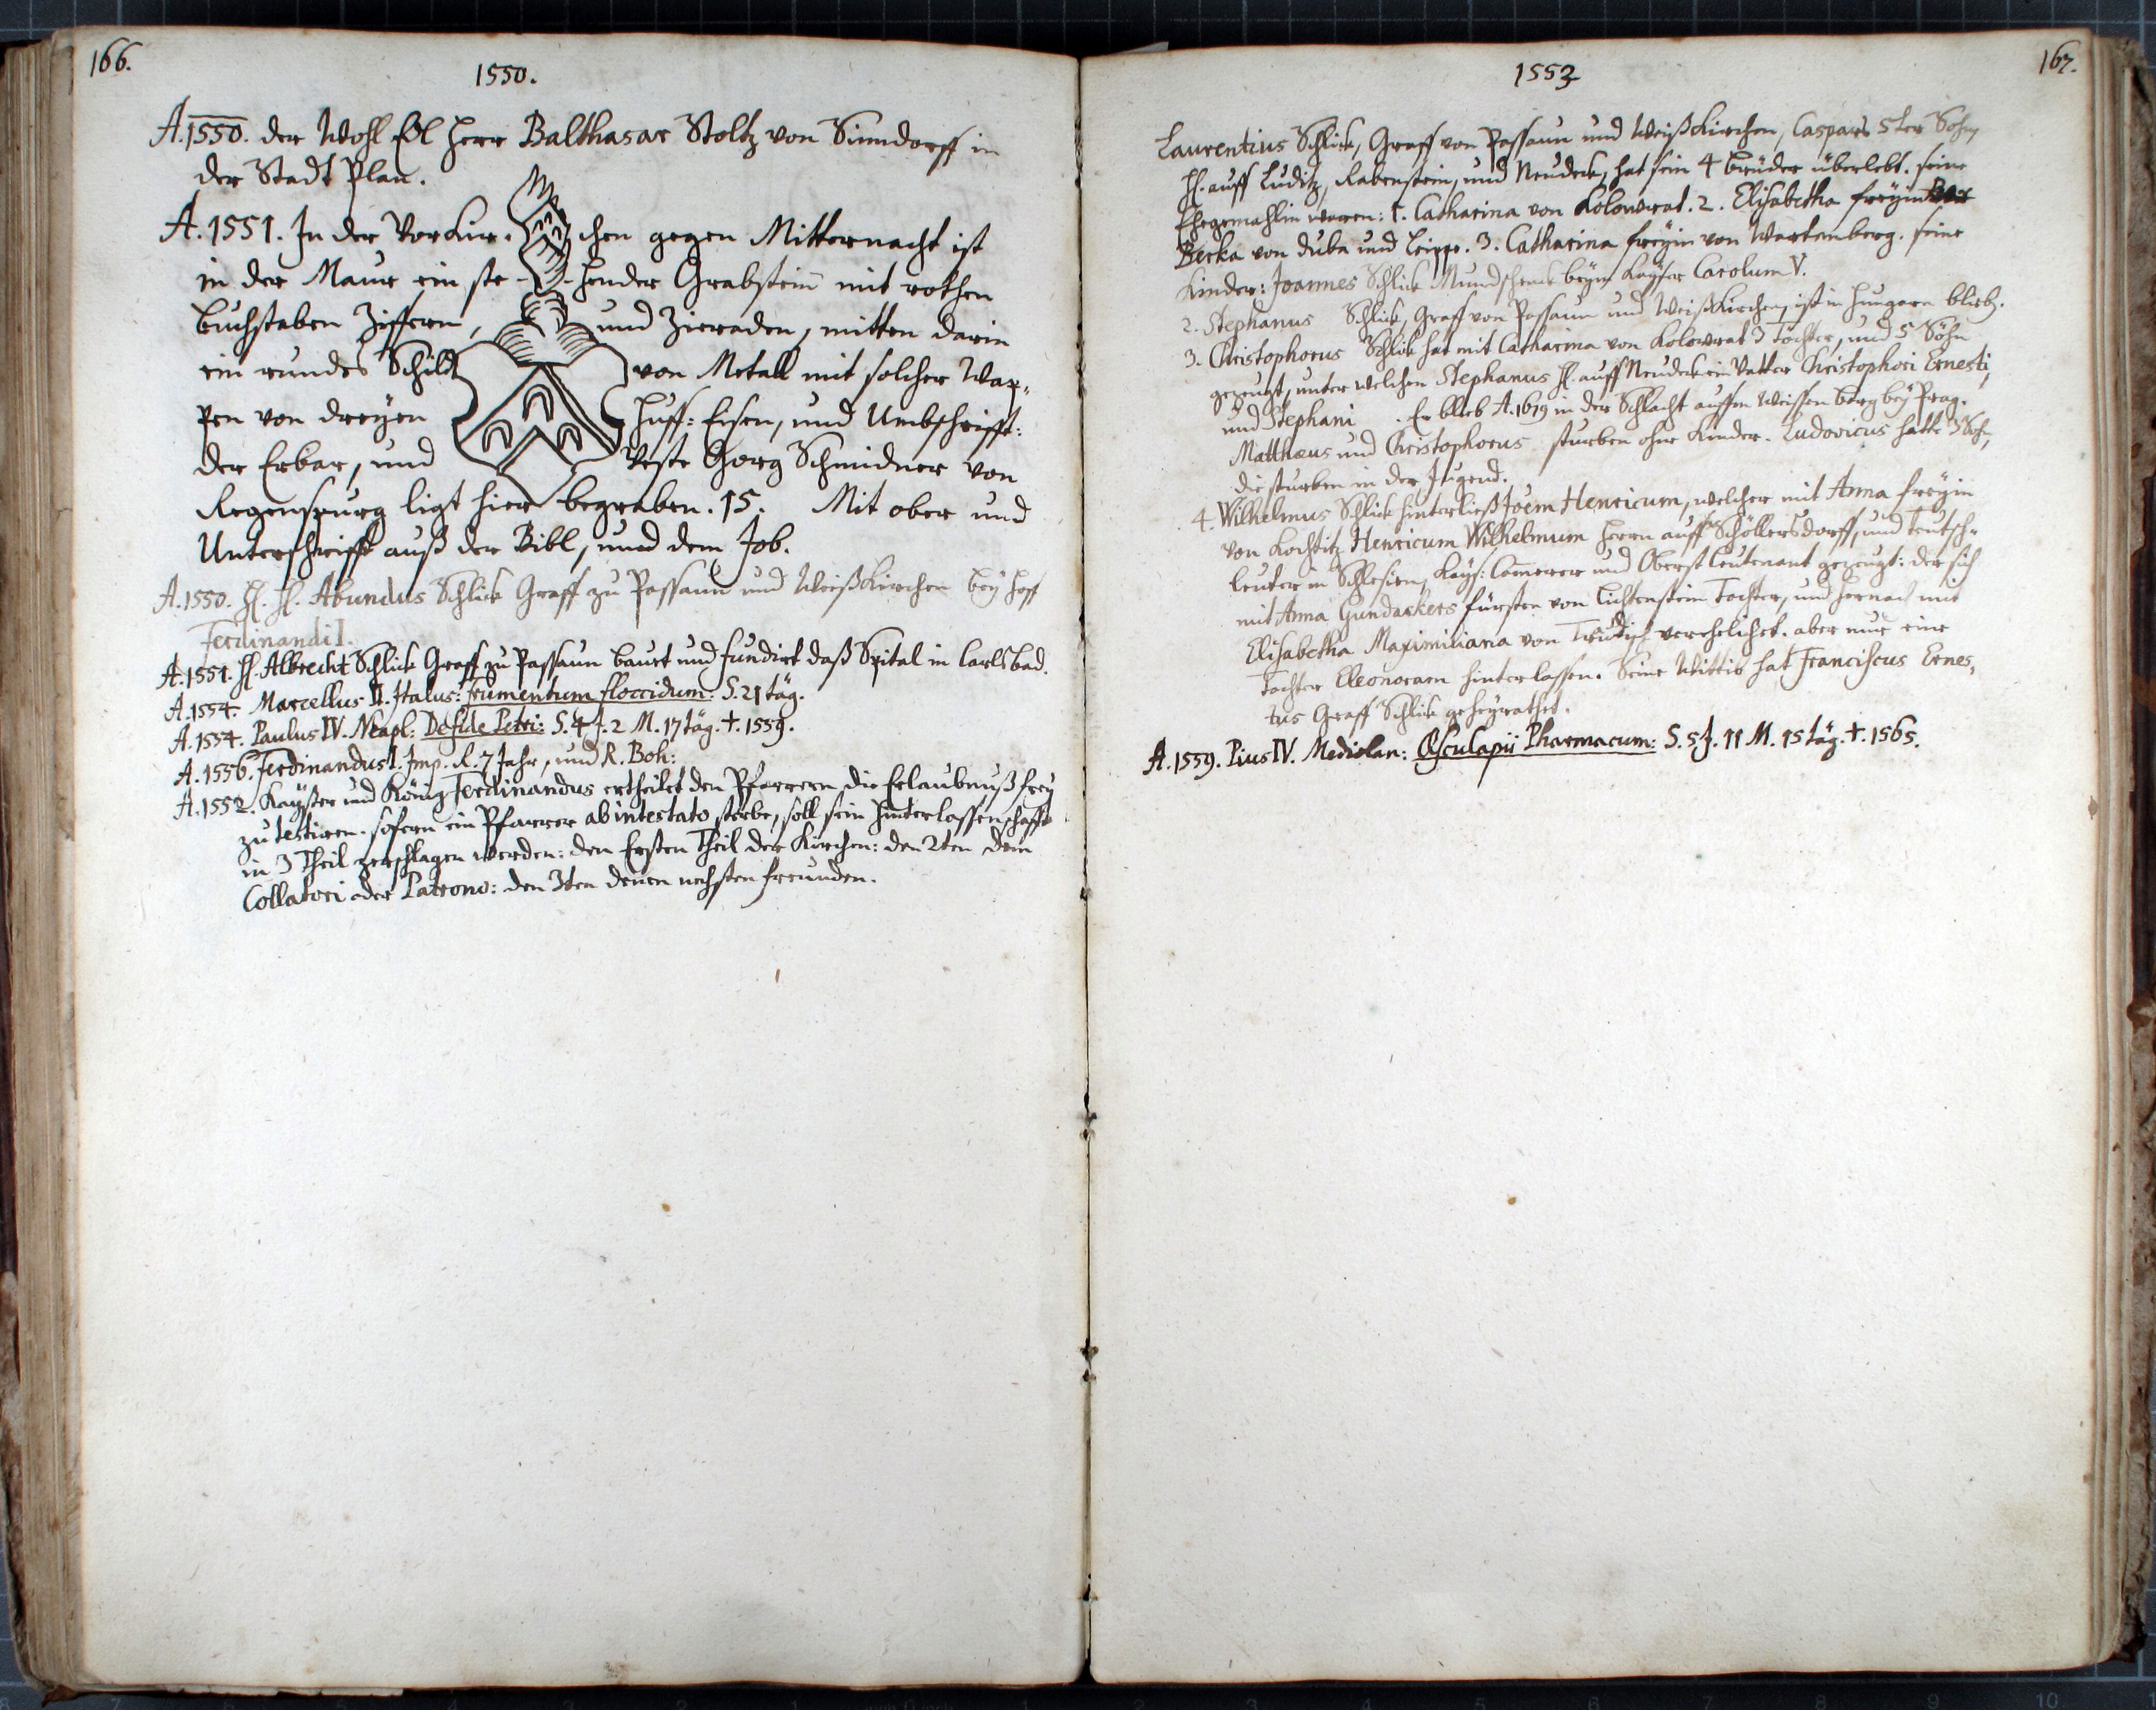 166.
1550.
A. 1550. der Wohl Edl Herr Balthasar Stoltz von Simdorff in
der Stadt Plan.
A. 1551. In der Vorkir- chen gegen Mitternacht ist
in der Maur ein ste- hender Grabstein mit rothen
buchstaben Ziffern, und Zieraden, mitten darin
ein rundes Schildt von Metall mit solcher Wap-
pen von dreyen Huff-Eisen, und Umbschrifft:
der Erbar, und Veste Georg Schmidner von
Regenspurg ligt hier begraben. 15. Mit ober und
Unterschrifft auß der Bibl, und dem Job.
A. 1550. H. H. Abundus Schlick Graff zu Passaun und Weißkirchen bey Hoff
Ferdinandi I.
A. 1551. H. Albrecht Schlick Graff zu Passaun baurt und fundirt daß Spital in Carlsbad.
A. 1554. Marcellus II. Italus: frumentum floccidum: S. 21 täg.
A. 1554. Paulus IV. Neapl: De fide Petri: S. 4 J. 2 M. 17 täg. † 1559.
A. 1556. Ferdinandus I. Imp. R. 7 Jahr, und R. Boh:
A. 1552. Kaÿser und König Ferdinandus ertheilet den Pfarrern die Erlaubnuß freÿ
zu testiren. sofern ein Pfarrer ab intestato sterbe, soll sein Hinterlassenschafft
in 3 Theil zerschlagen werden: den Ersten Theil der Kirchen: den 2ten dem
Collatori oder Patrono: den 3ten denen nechsten freunden.
1553
167.
Laurentius Schlick, Graff von Passaun und Weißkirchen, Caspars 5ter Sohn,
H. auff Luditz, Rabenstein, und Neudeck, hat sein 4 brüder überlebt. seine
Ehegemahlin waren: 1. Catharina von Kolowrat. 2. Elisabetha freÿin
Berka von Duba und Leippe. 3. Catharina freÿin von Wartemberg. seine
Kinder: Joannes Schlick Mundschenck beym Kaÿser Carolum V.
2. Stephanus Schlick, Graff von Passaun und Weißkirchen, ist in Hungarn blieb.
3. Christophorus Schlick hat mit Catharina von Kolowrat 3 Töchter, und 5 Söhn
gezeugt, unter welchen Stephanus H. auff Neudeck ein Vatter Christophori Ernesti,
und Stephani . Er blieb A. 1619 in der Schlacht auffn Weissenberg beÿ Prag.
Matthæus und Christophorus sturben ohne Kinder. Ludovicus hatte 3 Söhn,
die sturben in der Jugend.
4. Wilhelmus Schlick hinterließ Joem Henricum, welcher mit Anna freÿin
von Kochtitz Henricum Wilhelmum Herrn auff Schöllersdorff, und Teutsch-
leuten in Schlesien, Kaÿs: Camerer und Oberst Leutenant gezeugt: der sich
mit Anna Gundackers fürsten von Lichtenstein Tochter, und hernach mit
Elisabetha Maximiliana von verehelichet. aber nur eine
Tochter Eleonoram hinterlassen. Seine Wittib hat Franciscus Ernes-
tus Graff Schlick geheÿrathet.
A. 1559. Pius IV. Mediolan: Æsculapii Pharmacum: S. 5 J. 11 M. 15 täg. † 1565.